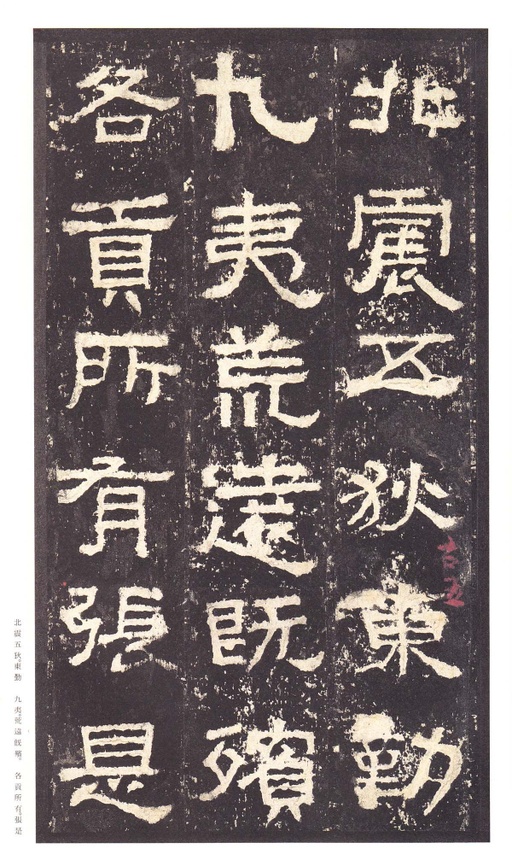 北震五狄東勤
九夷荒遠既殯
各貢所有張是
北震五狄。東勤 九夷。荒遠既殯。各貢所有。張是